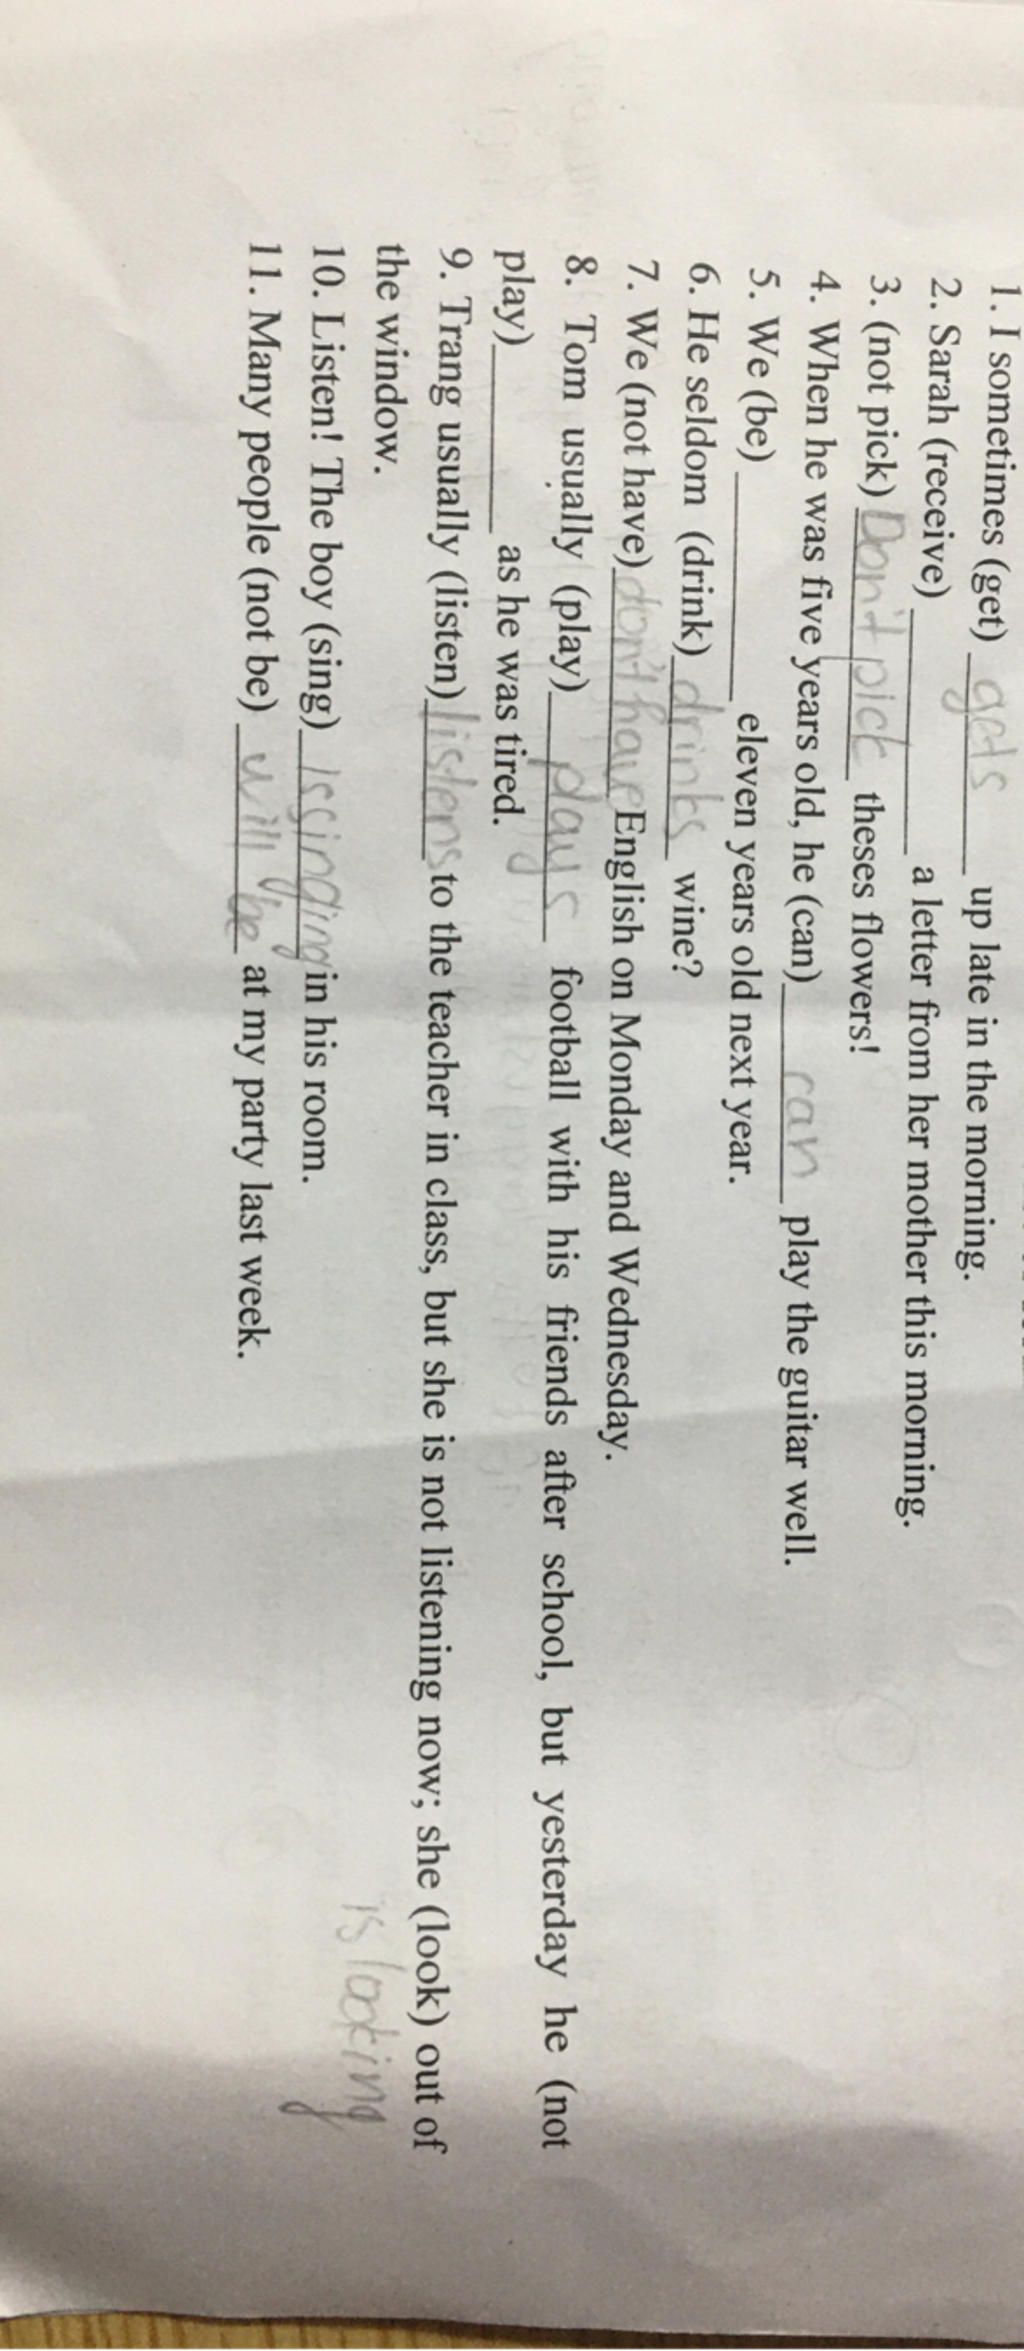 1. I sometimes (get) gets up late in the morning.
2. Sarah (receive) __________ a letter from her mother this morning.
3. (not pick) Don't pick theses flowers!
4. When he was five years old, he (can) can play the guitar well.
5. We (be) __________ eleven years old next year.
6. He seldom (drink) drinks wine?
7. We (not have) don't have English on Monday and Wednesday.
8. Tom usually (play) plays football with his friends after school, but yesterday he (not
play) __________ as he was tired.
9. Trang usually (listen) listens to the teacher in class, but she is not listening now; she (look) out of
the window. is looking
10. Listen! The boy (sing) Issinging in his room.
11. Many people (not be) will be at my party last week.